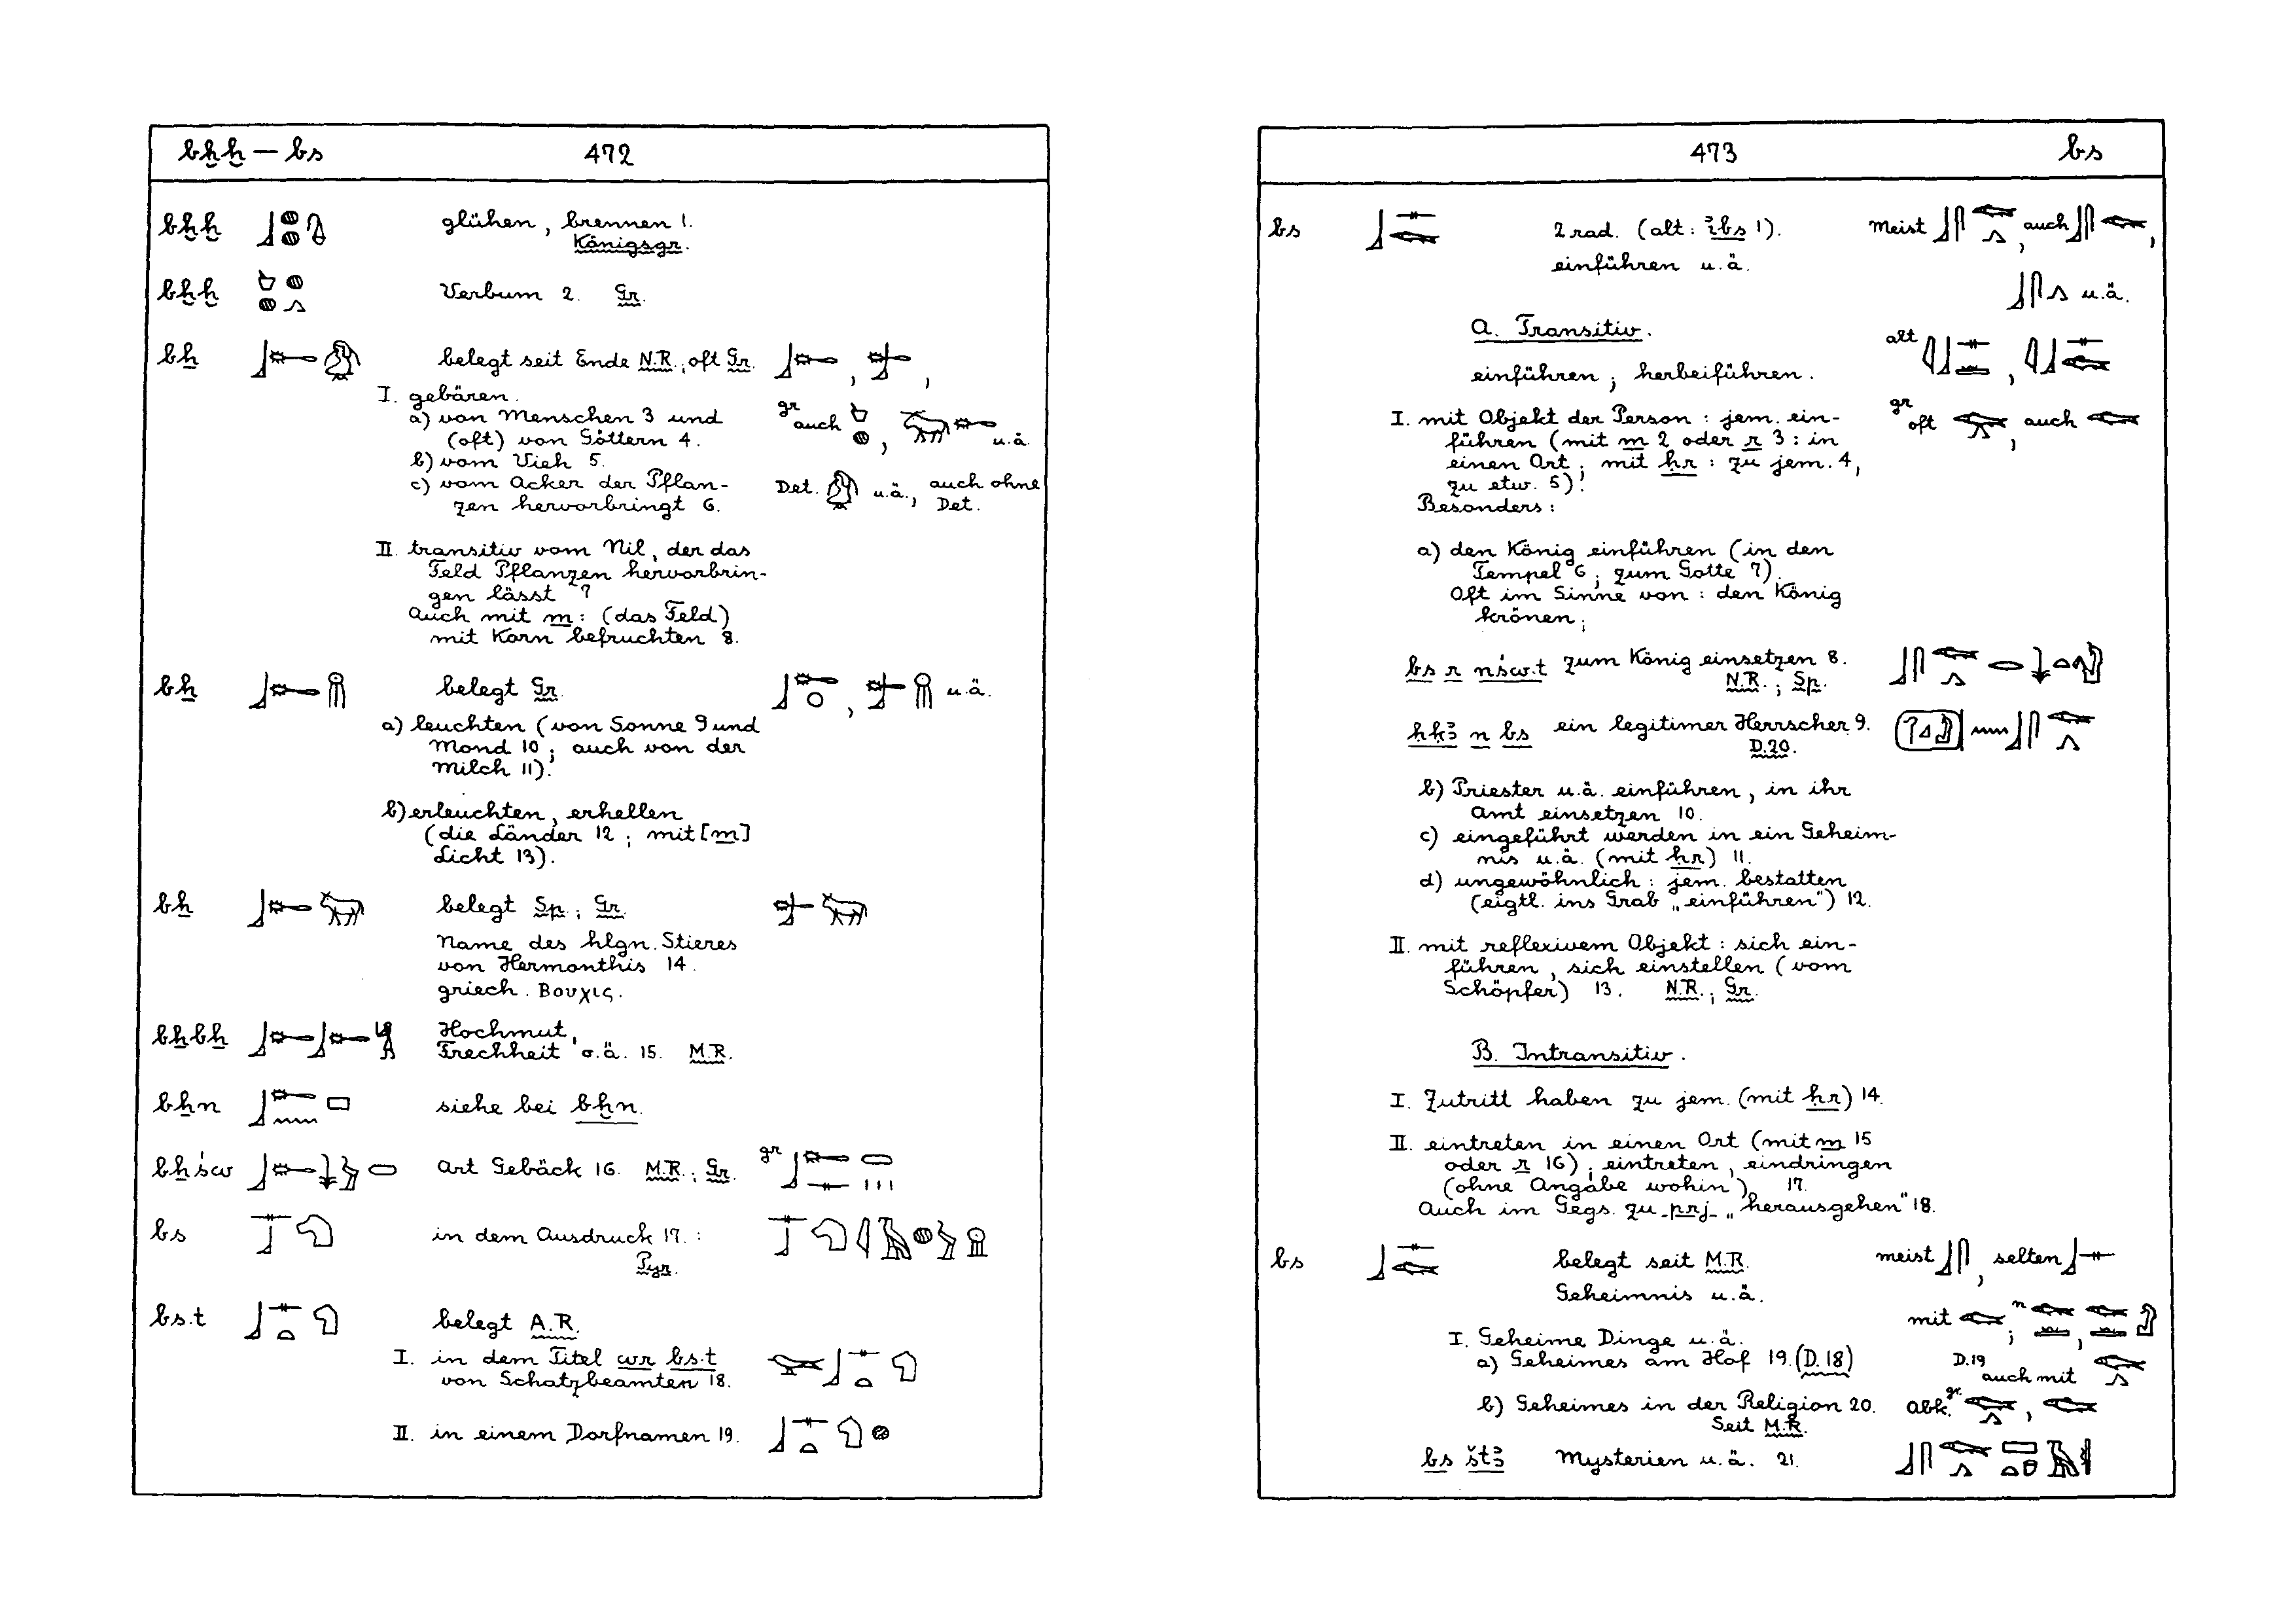 bḫḫ — bs 472
bḫḫ glühen, brennen 1.
Königsgr.
bḫḫ Verbum 2. Gr.
bẖ belegt seit Ende N.R.; oft Gr. , ,
I. gebären.
a) von Menschen 3 und gr auch , u.ä.
(oft) von Göttern 4.
b) vom Vieh 5.
c) vom Acker der Pflan- Det. u.ä., auch ohne
zen hervorbringt 6. Det.
II. transitiv vom Nil, der das
Feld Pflanzen hervorbrin-
gen lässt 7
Auch mit m: (das Feld)
mit Korn befruchten 8.
bẖ belegt Gr. , u.ä.
a) leuchten (von Sonne 9 und
Mond 10; auch von der
Milch 11).
b) erleuchten, erhellen
(die Länder 12; mit [m]
Licht 13).
bẖ belegt Sp.; Gr.
Name des hlgn. Stieres
von Hermonthis 14.
griech. Βουχις.
bẖbẖ Hochmut,
Frechheit o.ä. 15. M.R.
bẖn siehe bei bḫn.
bẖśw Art Gebäck 16. M.R.; Gr. gr
bs in dem Ausdruck 17. :
Pyr.
bs.t belegt A.R.
I. in dem Titel wr bs.t
von Schatzbeamten 18.
II. in einem Dorfnamen 19.
473 bs
bs 2 rad. (alt: ꞽbs 1). meist , auch ,
einführen u.ä.
u.ä.
A. Transitiv.
alt ,
einführen; herbeiführen.
I. mit Objekt der Person: jem. ein- gr oft , auch
führen (mit m 2 oder r 3: in
einen Ort; mit ḥr: zu jem. 4,
zu etw. 5).
Besonders:
a) den König einführen (in den
Tempel 6; zum Gotte 7).
Oft im Sinne von: den König
krönen;
bs r nśw.t zum König einsetzen 8.
N.R.; Sp.
ḥḳꜣ n bs ein legitimer Herrscher 9.
D.20.
b) Priester u.ä. einführen, in ihr
Amt einsetzen 10.
c) eingeführt werden in ein Geheim-
nis u.ä. (mit ḥr) 11.
d) ungewöhnlich: jem. bestatten
(eigtl. ins Grab „einführen") 12.
II. mit reflexivem Objekt: sich ein-
führen, sich einstellen (vom
Schöpfer) 13. N.R.; Gr.
B. Intransitiv.
I. Zutritt haben zu jem. (mit ḥr) 14.
II. eintreten in einen Ort (mit m 15
oder r 16); eintreten, eindringen
(ohne Angabe wohin) 17.
Auch im Gegs. zu prj „herausgehen" 18.
bs belegt seit M.R. meist , selten
Geheimnis u.ä.
mit ; n ,
I. Geheime Dinge u.ä.
a) Geheimes am Hof 19. (D.18) D.19 auch mit
b) Geheimes in der Religion 20. abk. gr. ,
Seit M.R.
bs štꜣ Mysterien u.ä. 21.